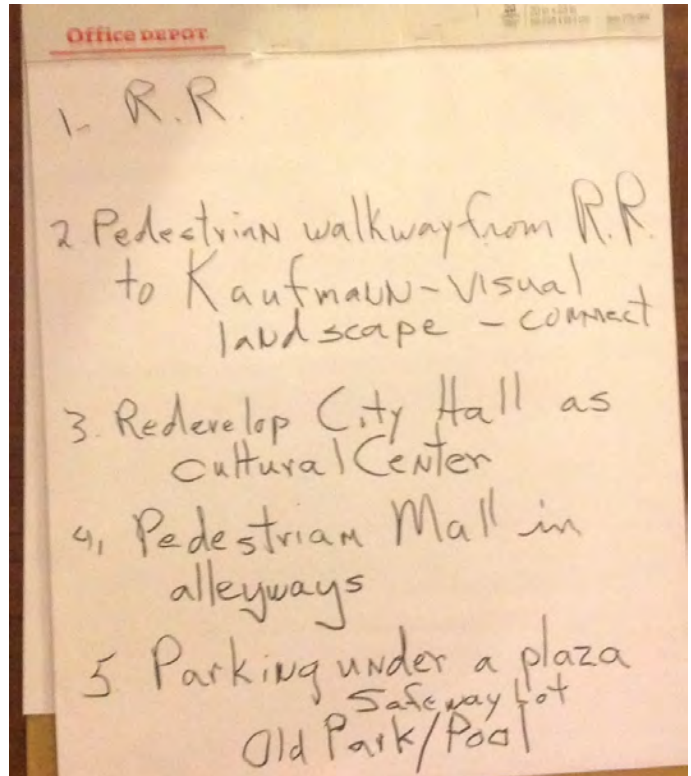 Office DEPOT
1- R.R.
2 Pedestrian walkway from R.R.
to Kaufmann - visual
landscape - connect
3. Redevelop City Hall as
cultural Center
4, Pedestrian Mall in
alleyways
5 Parking under a plaza
Safeway Lot
Old Park/Pool